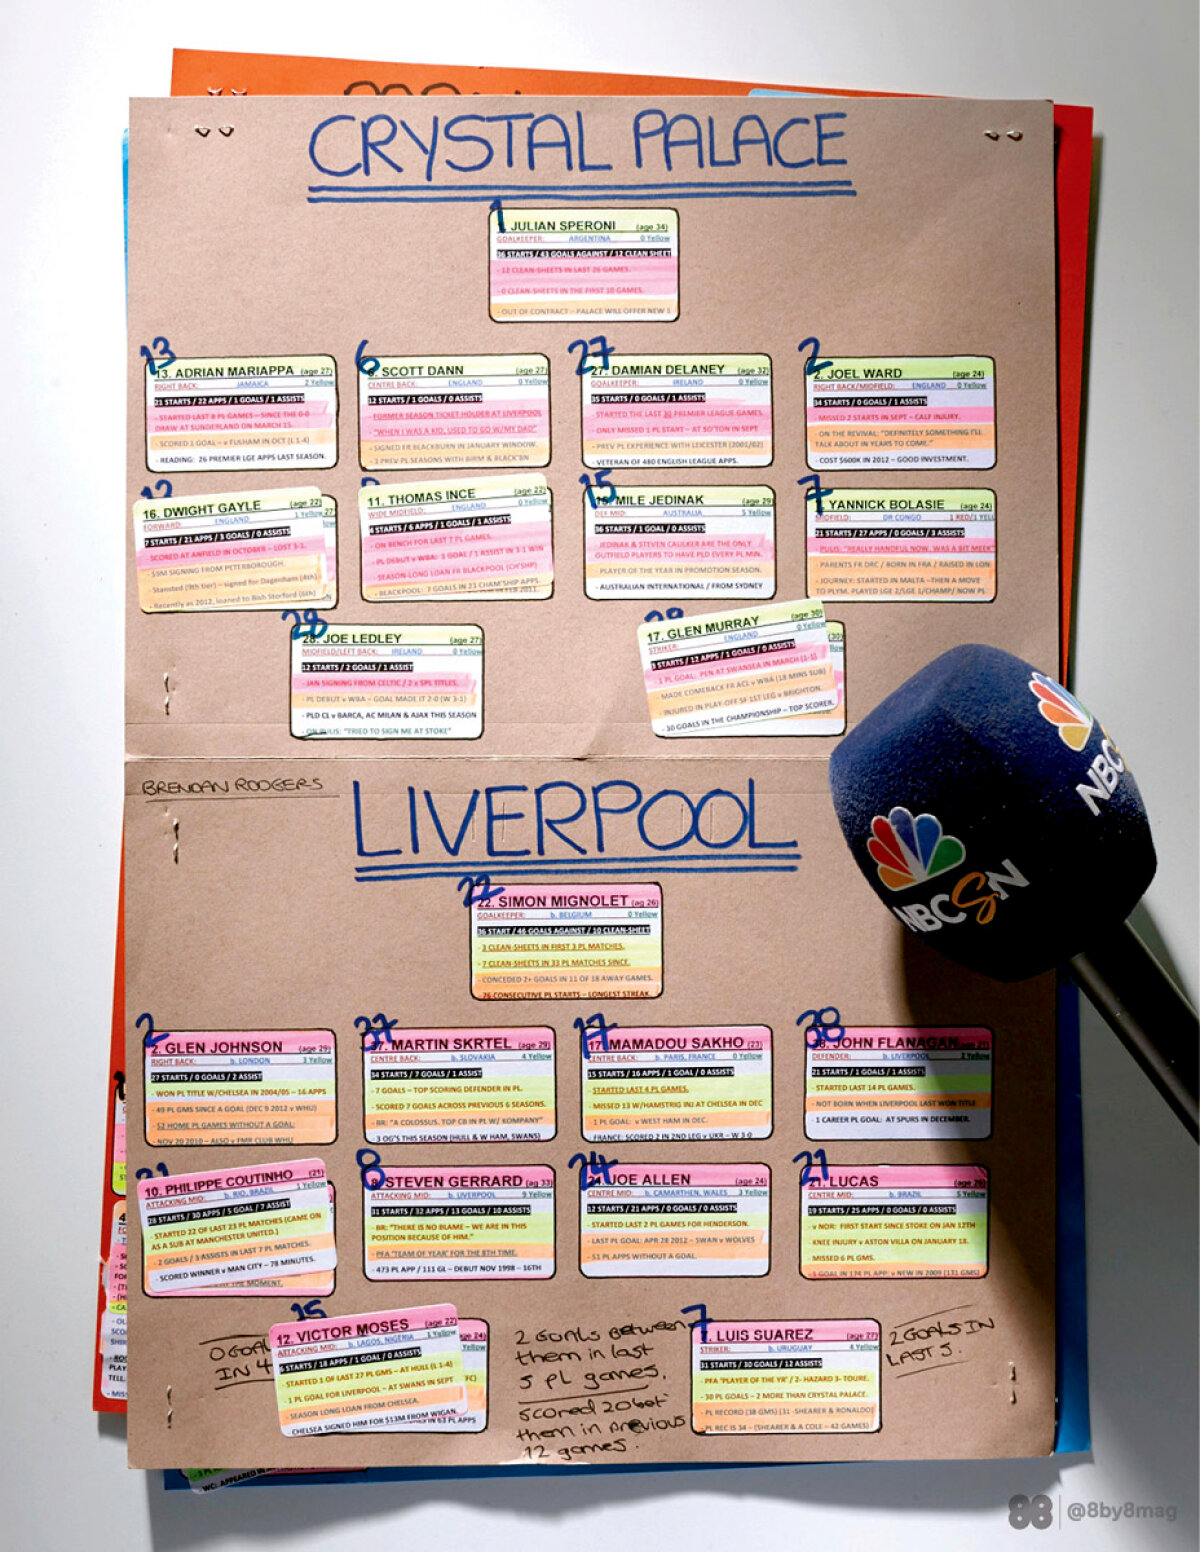 CRYSTAL PALACE
1 JULIAN SPERONI (age 34)
GOALKEEPER: ARGENTINA 0 Yellow
36 STARTS / 43 GOALS AGAINST / 12 CLEAN SHEET
- 12 CLEAN-SHEETS IN LAST 26 GAMES.
- 0 CLEAN-SHEETS IN THE FIRST 10 GAMES.
- OUT OF CONTRACT – PALACE WILL OFFER NEW 1
13
13. ADRIAN MARIAPPA (age 27)
RIGHT BACK: JAMAICA 2 Yellow
21 STARTS / 22 APPS / 1 GOALS / 1 ASSISTS
- STARTED LAST 8 PL GAMES – SINCE THE 0-0
DRAW AT SUNDERLAND ON MARCH 15.
- SCORED 1 GOAL – v FULHAM IN OCT (L 1-4)
- READING: 26 PREMIER LGE APPS LAST SEASON.
6
6. SCOTT DANN (age 27)
CENTRE BACK: ENGLAND 0 Yellow
12 STARTS / 1 GOALS / 1 ASSISTS
- FORMER SEASON TICKET HOLDER AT LIVERPOOL
- "WHEN I WAS A KID, USED TO GO W/MY DAD"
- SIGNED FR BLACKBURN IN JANUARY WINDOW.
- 3 PREV PL SEASONS WITH BIRM & BLACK'BN
27
27. DAMIAN DELANEY (age 32)
GOALKEEPER: IRELAND 0 Yellow
35 STARTS / 1 GOALS / 0 ASSISTS
- STARTED THE LAST 30 PREMIER LEAGUE GAMES.
- ONLY MISSED 1 PL START – AT SO'TON IN SEPT
- PREV PL EXPERIENCE WITH LEICESTER (2001/02)
- VETERAN OF 480 ENGLISH LEAGUE APPS.
2
2. JOEL WARD (age 24)
RIGHT BACK/MIDFIELD: ENGLAND 0 Yellow
34 STARTS / 0 GOALS / 1 ASSISTS
- MISSED 2 STARTS IN SEPT – CALF INJURY.
- ON THE REVIVAL: "DEFINITELY SOMETHING I'LL
TALK ABOUT IN YEARS TO COME."
- COST $600K IN 2012 – GOOD INVESTMENT.
16. DWIGHT GAYLE (age 22)
FORWARD: ENGLAND 1 Yellow
7 STARTS / 21 APPS / 3 GOALS / 0 ASSISTS
- SCORED AT ANFIELD IN OCTOBER – LOST 3-1.
- $9M SIGNING FROM PETERBOROUGH.
- Stansted (9th tier) – signed for Dagenham (4th)
- Recently as 2012, loaned to Bish Storford (6th)
11. THOMAS INCE (age 22)
WIDE MIDFIELD: ENGLAND 0 Yellow
4 STARTS / 6 APPS / 1 GOALS / 1 ASSISTS
- ON BENCH FOR LAST 7 PL GAMES.
- PL DEBUT v WBA: 1 GOAL / 1 ASSIST IN 3-1 WIN
- SEASON-LONG LOAN FR BLACKPOOL (CH'SHP)
- BLACKPOOL: 7 GOALS IN 23 CHAM'SHIP APPS.
15
15. MILE JEDINAK (age 29)
DEF MID: AUSTRALIA 5 Yellow
36 STARTS / 1 GOAL / 0 ASSISTS
- JEDINAK & STEVEN CAULKER ARE THE ONLY
OUTFIELD PLAYERS TO HAVE PLD EVERY PL MIN.
- PLAYER OF THE YEAR IN PROMOTION SEASON.
- AUSTRALIAN INTERNATIONAL / FROM SYDNEY
7
YANNICK BOLASIE (age 24)
MIDFIELD: DR CONGO 1 RED/1 YELL
21 STARTS / 27 APPS / 0 GOALS / 3 ASSISTS
- PULIS: "REALLY HANDFUL NOW. WAS A BIT MEEK"
- PARENTS FR DRC / BORN IN FRA / RAISED IN LON
- JOURNEY: STARTED IN MALTA –THEN A MOVE
TO PLYM. PLAYED LGE 2/LGE 1/CHAMP/ NOW PL
28
28. JOE LEDLEY (age 27)
MIDFIELD/LEFT BACK: IRELAND 0 Yellow
12 STARTS / 2 GOALS / 1 ASSIST
- JAN SIGNING FROM CELTIC / 2 x SPL TITLES.
- PL DEBUT v WBA – GOAL MADE IT 2-0 (W 3-1)
- PLD CL v BARCA, AC MILAN & AJAX THIS SEASON
- ON PULIS: "TRIED TO SIGN ME AT STOKE"
17. GLEN MURRAY (age 30)
STRIKER: ENGLAND 0 Yellow
3 STARTS / 12 APPS / 1 GOALS / 0 ASSISTS
- 1 PL GOAL: PEN AT SWANSEA IN MARCH (1-1)
- MADE COMEBACK FR ACL v WBA (18 MINS SUB)
- INJURED IN PLAY-OFF SF 1ST LEG v BRIGHTON.
- 30 GOALS IN THE CHAMPIONSHIP – TOP SCORER.
BRENDAN RODGERS
LIVERPOOL
22
22. SIMON MIGNOLET (ag 26)
GOALKEEPER: b. BELGIUM 0 Yellow
36 START / 46 GOALS AGAINST / 10 CLEAN-SHEET
- 3 CLEAN-SHEETS IN FIRST 3 PL MATCHES.
- 7 CLEAN-SHEETS IN 33 PL MATCHES SINCE.
- CONCEDED 2+ GOALS IN 11 OF 18 AWAY GAMES.
- 76 CONSECUTIVE PL STARTS – LONGEST STREAK
2
2. GLEN JOHNSON (age 29)
RIGHT BACK: b. LONDON 3 Yellow
27 STARTS / 0 GOALS / 2 ASSIST
- WON PL TITLE W/CHELSEA IN 2004/05 – 16 APPS
- 49 PL GMS SINCE A GOAL (DEC 9 2012 v WHU)
- 52 HOME PL GAMES WITHOUT A GOAL:
- NOV 20 2010 – ALSO v FMR CLUB WHU
37
37. MARTIN SKRTEL (age 29)
CENTRE BACK: b. SLOVAKIA 4 Yellow
34 STARTS / 7 GOALS / 1 ASSIST
- 7 GOALS – TOP SCORING DEFENDER IN PL.
- SCORED 7 GOALS ACROSS PREVIOUS 6 SEASONS.
- BR: "A COLOSSUS. TOP CB IN PL W/ KOMPANY"
- 3 OG'S THIS SEASON (HULL & W HAM, SWANS)
17
17. MAMADOU SAKHO (23)
CENTRE BACK: b. PARIS, FRANCE 0 Yellow
15 STARTS / 16 APPS / 1 GOAL / 0 ASSISTS
- STARTED LAST 4 PL GAMES.
- MISSED 13 W/HAMSTRIG INJ AT CHELSEA IN DEC
- 1 PL GOAL: v WEST HAM IN DEC.
- FRANCE: SCORED 2 IN 2ND LEG v UKR – W 3-0
38
38. JOHN FLANAGAN (age 21)
DEFENDER: b. LIVERPOOL 2 Yellow
21 STARTS / 1 GOALS / 1 ASSIST
- STARTED LAST 14 PL GAMES.
- NOT BORN WHEN LIVERPOOL LAST WON TITLE
- 1 CAREER PL GOAL: AT SPURS IN DECEMBER.
10. PHILIPPE COUTINHO (21)
ATTACKING MID: b. RIO, BRAZIL 1 Yellow
28 STARTS / 30 APPS / 5 GOAL / 7 ASSIST
- STARTED 22 OF LAST 23 PL MATCHES (CAME ON
AS A SUB AT MANCHESTER UNITED.)
- 2 GOALS / 3 ASSISTS IN LAST 7 PL MATCHES.
- SCORED WINNER v MAN CITY – 78 MINUTES.
THE MOMENT.
8
8. STEVEN GERRARD (ag 33)
ATTACKING MID: b. LIVERPOOL 9 Yellow
31 STARTS / 32 APPS / 13 GOALS / 10 ASSISTS
- BR: "THERE IS NO BLAME – WE ARE IN THIS
POSITION BECAUSE OF HIM."
- PFA 'TEAM OF YEAR' FOR THE 8TH TIME.
- 473 PL APP / 111 GL – DEBUT NOV 1998 – 16TH
24
24. JOE ALLEN (age 24)
CENTRE MID: b. CAMARTHEN, WALES 3 Yellow
12 STARTS / 21 APPS / 0 GOALS / 0 ASSISTS
- STARTED LAST 2 PL GAMES FOR HENDERSON.
- LAST PL GOAL: APR 28 2012 – SWAN v WOLVES
- 51 PL APPS WITHOUT A GOAL.
21
21. LUCAS (age 26)
CENTRE MID: b. BRAZIL 5 Yellow
19 STARTS / 25 APPS / 0 GOALS / 0 ASSISTS
- v NOR: FIRST START SINCE STOKE ON JAN 12TH
KNEE INJURY v ASTON VILLA ON JANUARY 18.
- MISSED 6 PL GMS.
- 1 GOAL IN 174 PL APP: v NEW IN 2009 (131 GMS)
0 GOAL
IN 4
12. VICTOR MOSES (age 22)
ATTACKING MID: b. LAGOS, NIGERIA 1 Yellow
6 STARTS / 18 APPS / 1 GOAL / 0 ASSISTS
- STARTED 1 OF LAST 27 PL GMS – AT HULL (L 1-4)
- 1 PL GOAL FOR LIVERPOOL – AT SWANS IN SEPT
- SEASON LONG LOAN FROM CHELSEA.
- CHELSEA SIGNED HIM FOR $13M FROM WIGAN.
2 GOALS BETWEEN
them in last
5 PL games.
Scored 20 bet
them in previous
12 games.
7
7. LUIS SUAREZ (age 27)
STRIKER: b. URUGUAY 4 Yellow
31 STARTS / 30 GOALS / 12 ASSISTS
- PFA 'PLAYER OF THE YR' / 2- HAZARD 3- TOURE.
- 30 PL GOALS – 2 MORE THAN CRYSTAL PALACE.
- PL RECORD (38 GMS) (31 -SHEARER & RONALDO)
- PL REC IS 34 – (SHEARER & A COLE – 42 GAMES)
2 GOALS IN
LAST 5.
NBC
NBCSN
88 @8by8mag